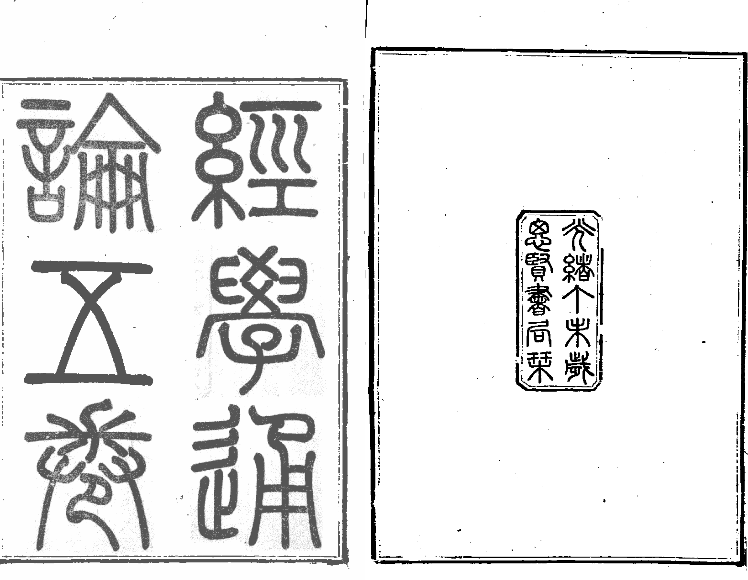 經學通
論五卷
光緒丁未歲
思賢書局栞